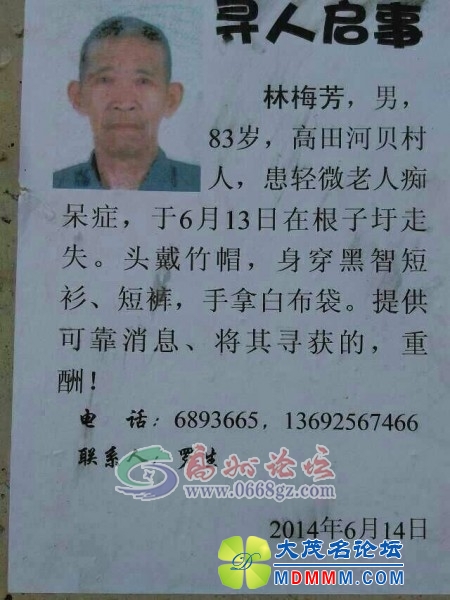 寻人启事
林梅芳，男，
83岁，高田河贝村
人，患轻微老人痴
呆症，于6月13日在根子圩走
失。头戴竹帽，身穿黑智短
衫、短裤，手拿白布袋。提供
可靠消息、将其寻获的，重
酬！
电 话：6893665，13692567466
联系人：罗生
高州论坛
www.0668gz.com
2014年6月14日
大茂名论坛
MDMMM.COM